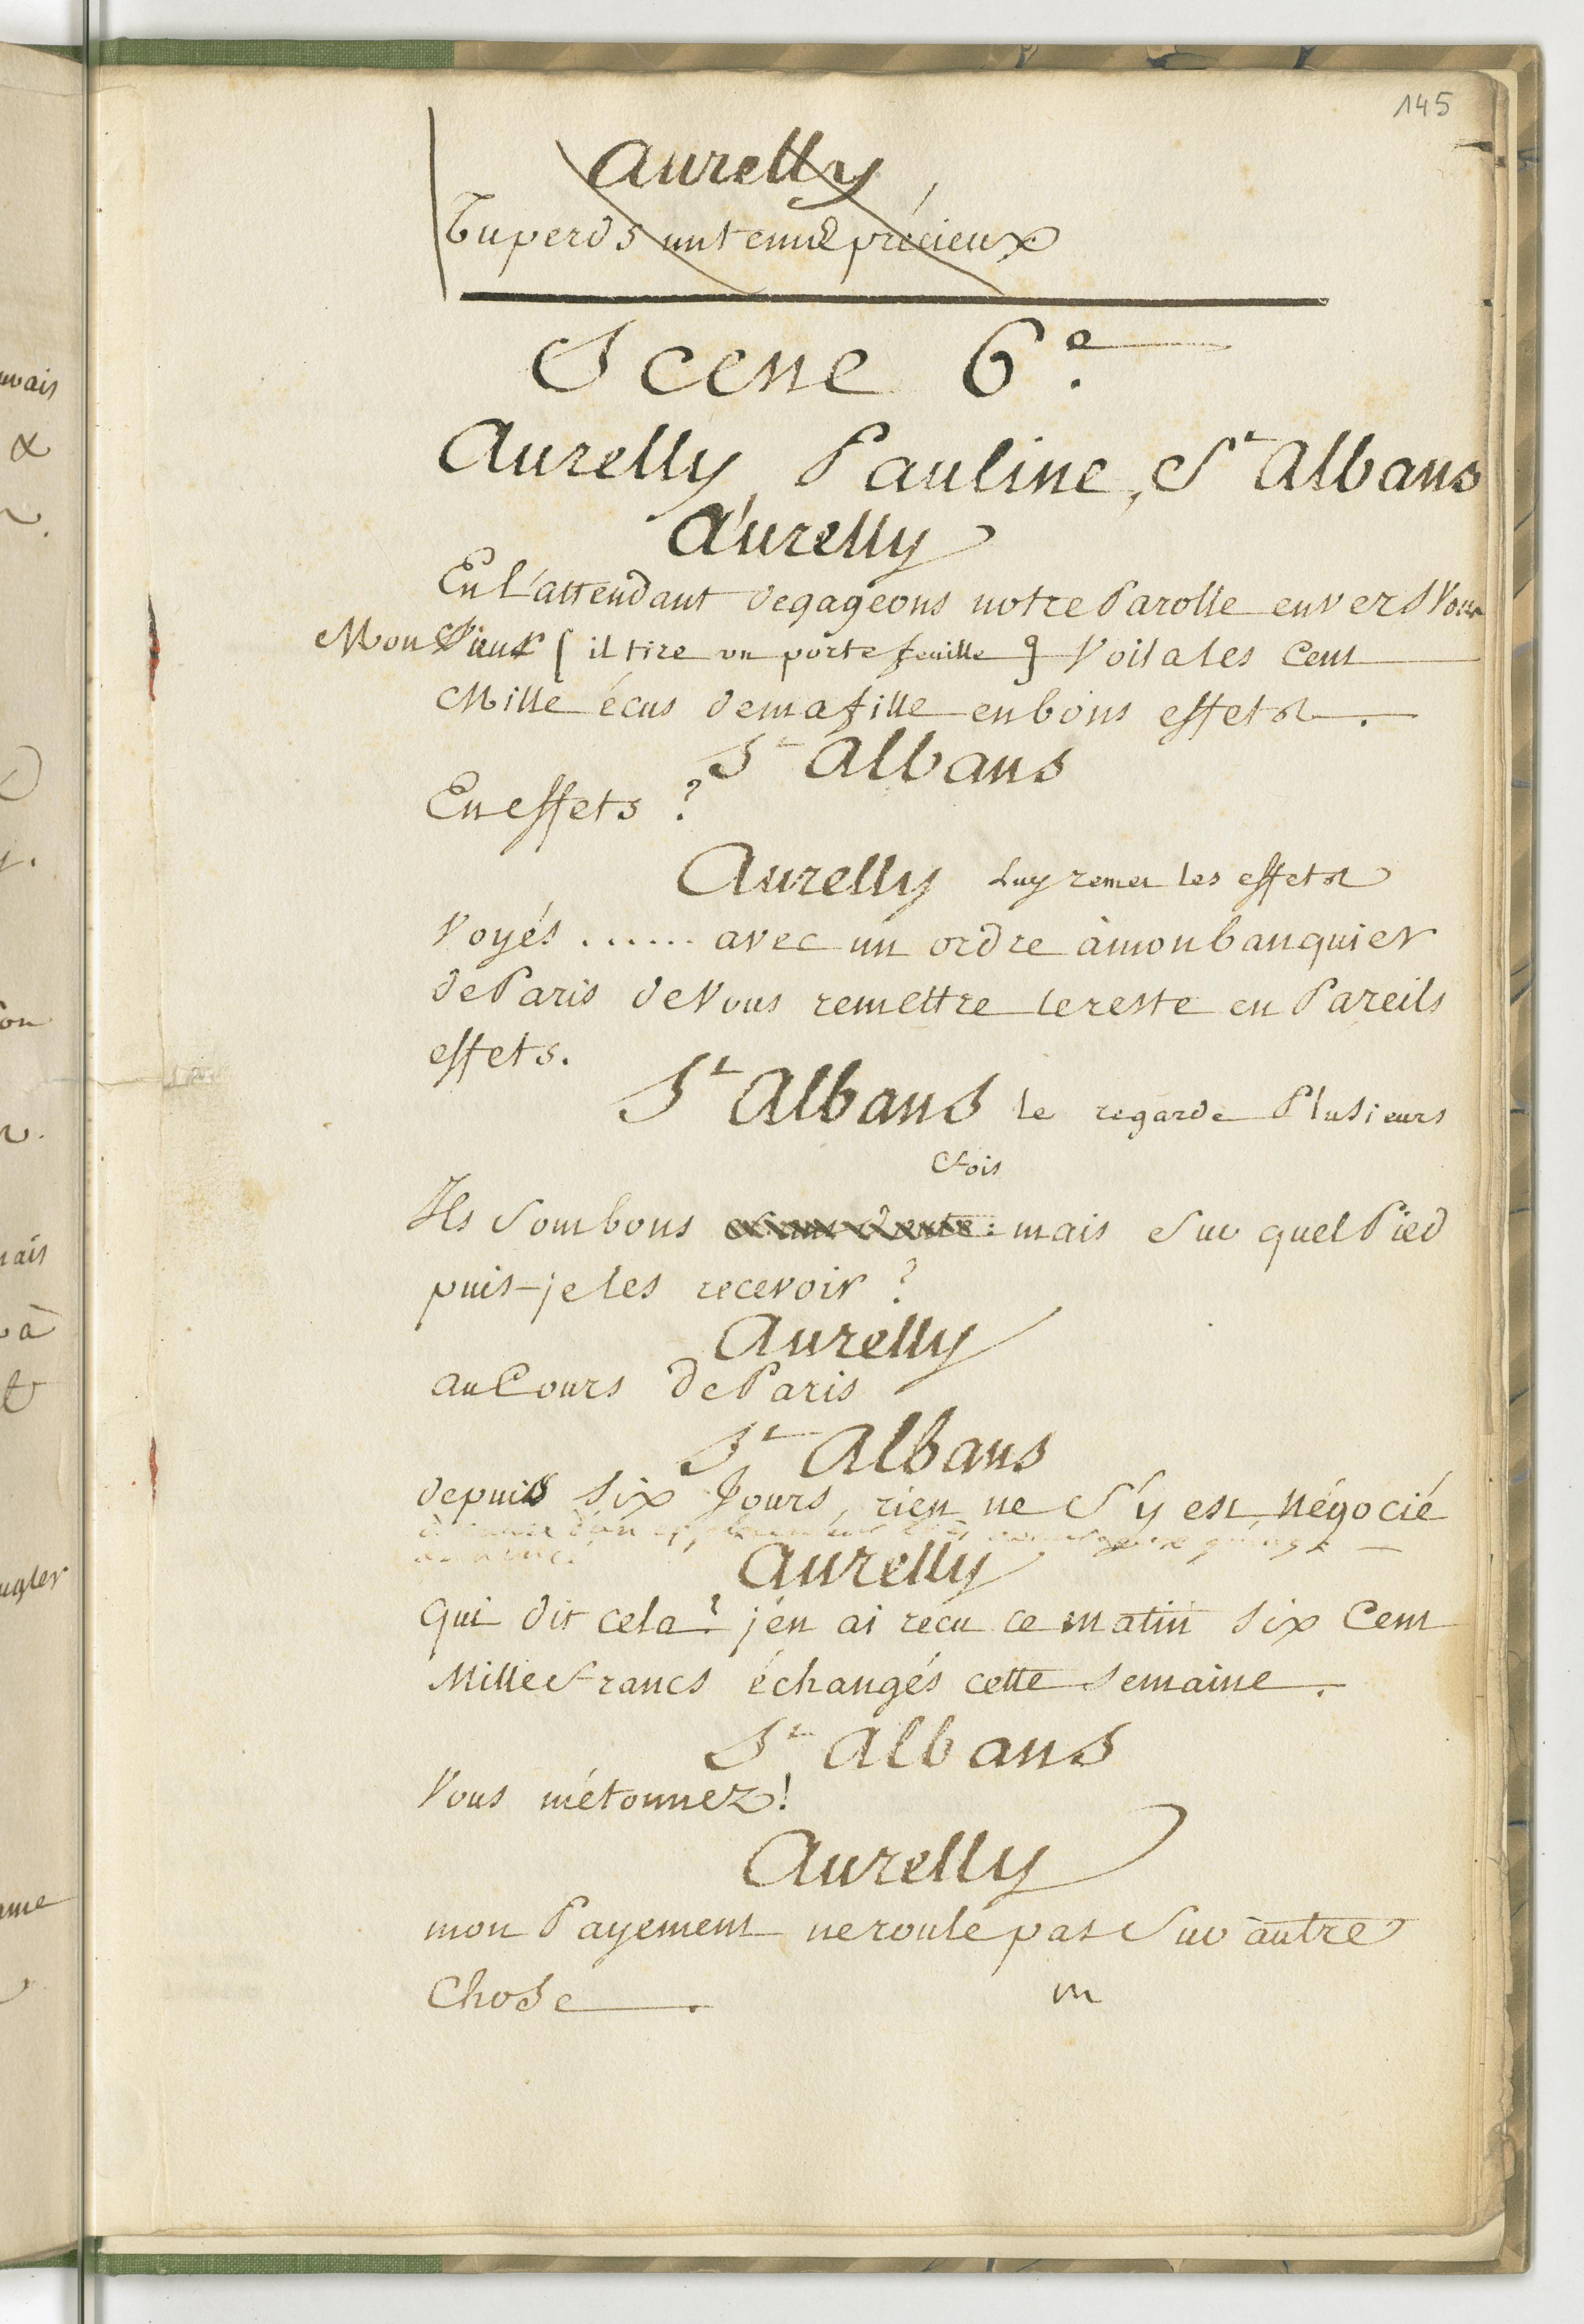 145
Aurelly
Tu perds un tems précieux
Scene 6.e
Aurelly, Pauline, St Albans
Aurelly
En l'attendant degageons notre Parolle envers Vous
Monsieur [ il tire un porte feuille ] Voila les Cent
Mille écus de ma fille en bons effets.
St Albans
En effets ?
Aurelly Luy remet les effets
Voyés ...... avec un ordre à mon banquier
de Paris de Vous remettre le reste en Pareils
effets.
St Albans le regarde Plusieurs
fois
Ils Sont bons : mais Sur quel Pied
puis-je les recevoir ?
Aurelly
au Cours de Paris
St Albans
depuis Six Jours, rien ne S'y est négocié
Aurelly
Qui dit cela ? j'en ai recu ce matin Six Cent
Mille francs échangés cette Semaine.
St Albans
Vous m'étonnez !
Aurelly
mon Payement ne roule pas Sur autre
Chose.